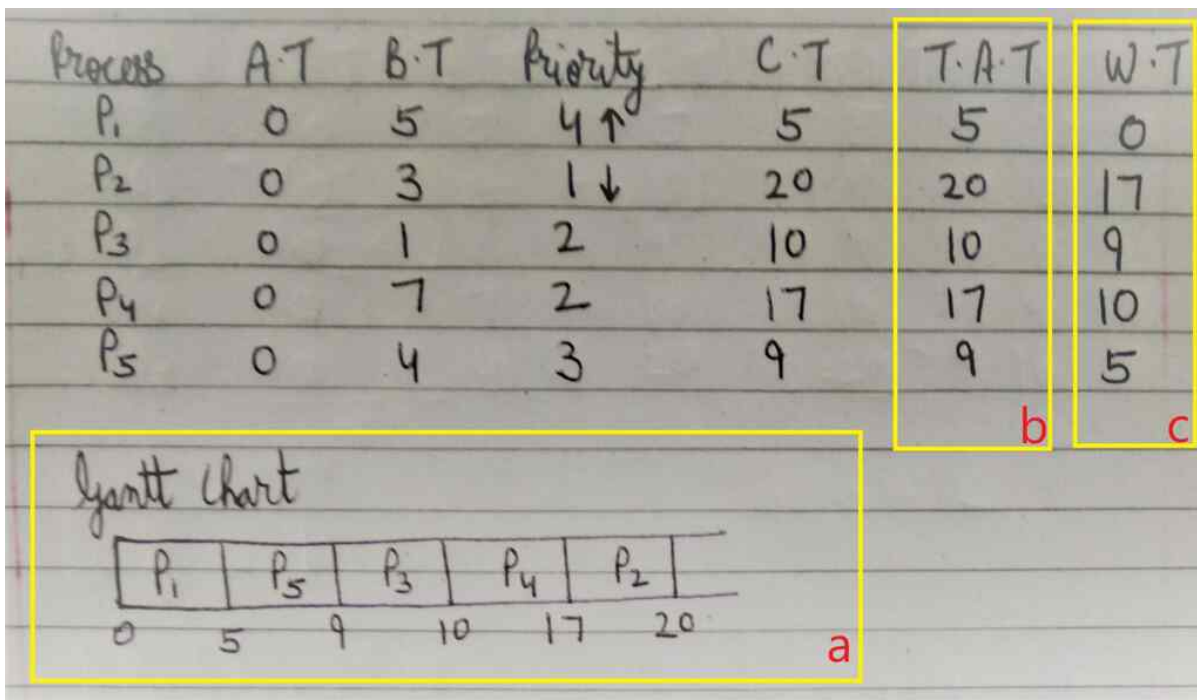 Process A.T B.T Priority C.T T.A.T W.T
P1 0 5 4↑ 5 5 0
P2 0 3 1↓ 20 20 17
P3 0 1 2 10 10 9
P4 0 7 2 17 17 10
P5 0 4 3 9 9 5
b c
Gantt Chart
P1 P5 P3 P4 P2
0 5 9 10 17 20
a